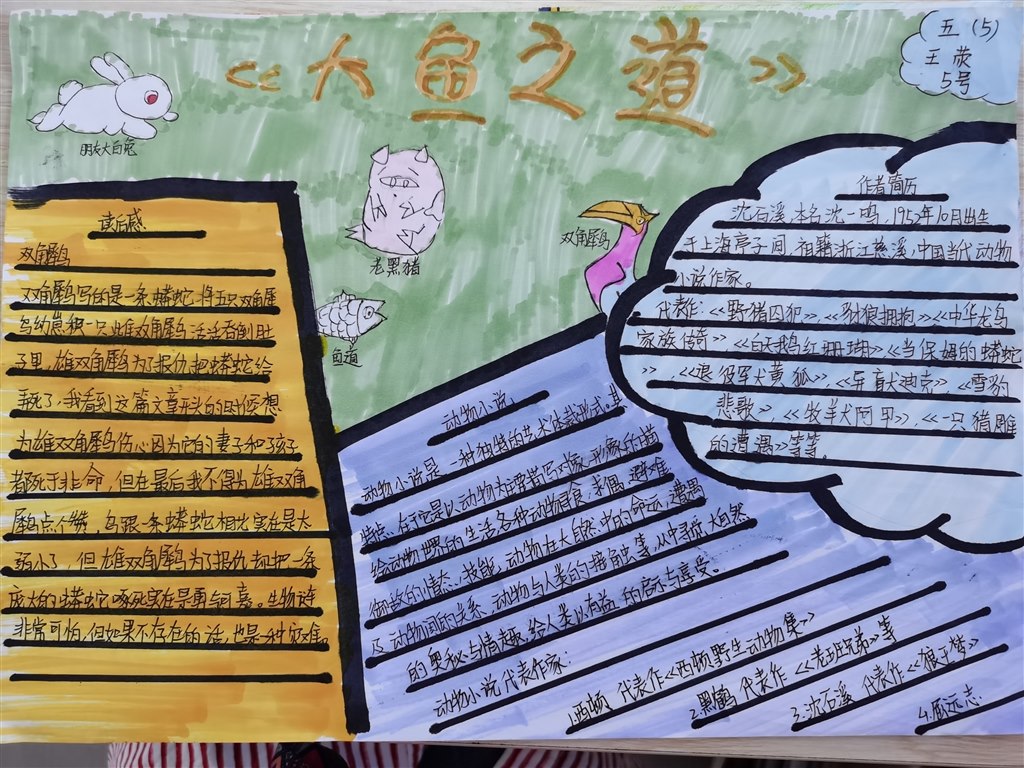 《大鱼之道》
五(5)
王荧
5号
朋友大白兔
老黑猪
双角犀鸟
鱼道
读后感
双角犀鸟
双角犀鸟写的是一条蟒蛇将五只双角犀
鸟幼崽独一只雌双角犀鸟活活吞倒肚
子里,雄双角犀鸟为了报仇把蟒蛇给
弄死了,我看到这篇文章开头的时候想
为雄双角犀鸟伤心因为它的妻子和孩子
都死于非命,但在最后我不得为雄双角
犀鸟点个赞,鸟跟一条蟒蛇相比实在是太
弱小了,但雄双角犀鸟为了报仇却把一条
庞大的蟒蛇啄死实在是勇气可嘉。生物链
非常可怕,但如果不存在的话,也是一种灾难。
动物小说。
动物小说是一种独特的艺术体裁形式。其
特点在于它是以动物为主要描写对象,形象的描
绘动世界的生活各种动物的食,求偶,避难
御敌的情态,技能,动物在大自然中的命运,遭遇
及动物间的关系,动物与人类的接触史等,从中寻求大自然
的奥秘与情趣,给人类以有益的启示与享受。
动物小说代表作家:
1.西顿 代表作《西顿野生动物集》
2.黑鹤 代表作《老班兄弟》等
3.沈石溪 代表作《狼王梦》
4.顾远志
作者简历
沈石溪,本名沈一鸣,1952年10月出生
于上海亭子间,祖籍浙江慈溪,中国当代动物
小说作家。
代表作:《野猪囚犯》、《豺狼拥抱》《中华龙鸟
家族传奇》《白天鹅红珊瑚》《当保姆的蟒蛇
》,《退役军犬黄狐》,《导盲犬迪克》,《雪豹
悲歌》、《牧羊犬阿甲》,《一只猪雕
的遭遇》等等。